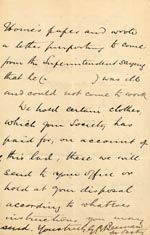 Home's paper and wrote
a letter purporting to come
from the Superintendent saying
that he (                ) was ill
and could not come to work
We hold certain clothes
which your Society has
paid for, on account of
this lad; these we will
send to your office or
hold at your disposal
according to whatever
instructions you may
send. Yours truly